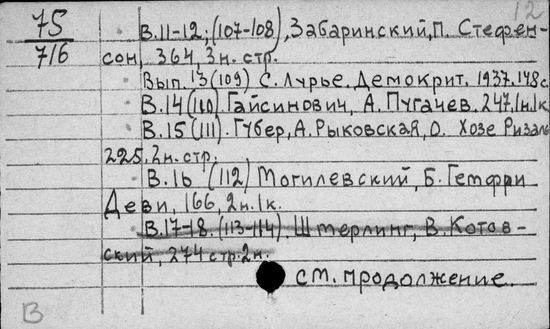 12
75
716
В.11-12; (107-108), Забаринский, П. Стефен-
сон, 364, 3н. стр.
Вып. 13 (109) С. Лурье. Демокрит. 1937. 148 с.
В.14 (110). Гайсинович, А. Пугачев. 247.1н.1к.
В.15 (111). Губер, А. Рыковская, О. Хозе Ризаль
225, 2н. стр;
В.16 (112) Могилевский, Б. Гемфри
Деви, 166, 2н.1к.
В.17-18. (113-114). Штерлинг, В. Котов-
ский, 274 стр. 2н.
см. продолжение.
В